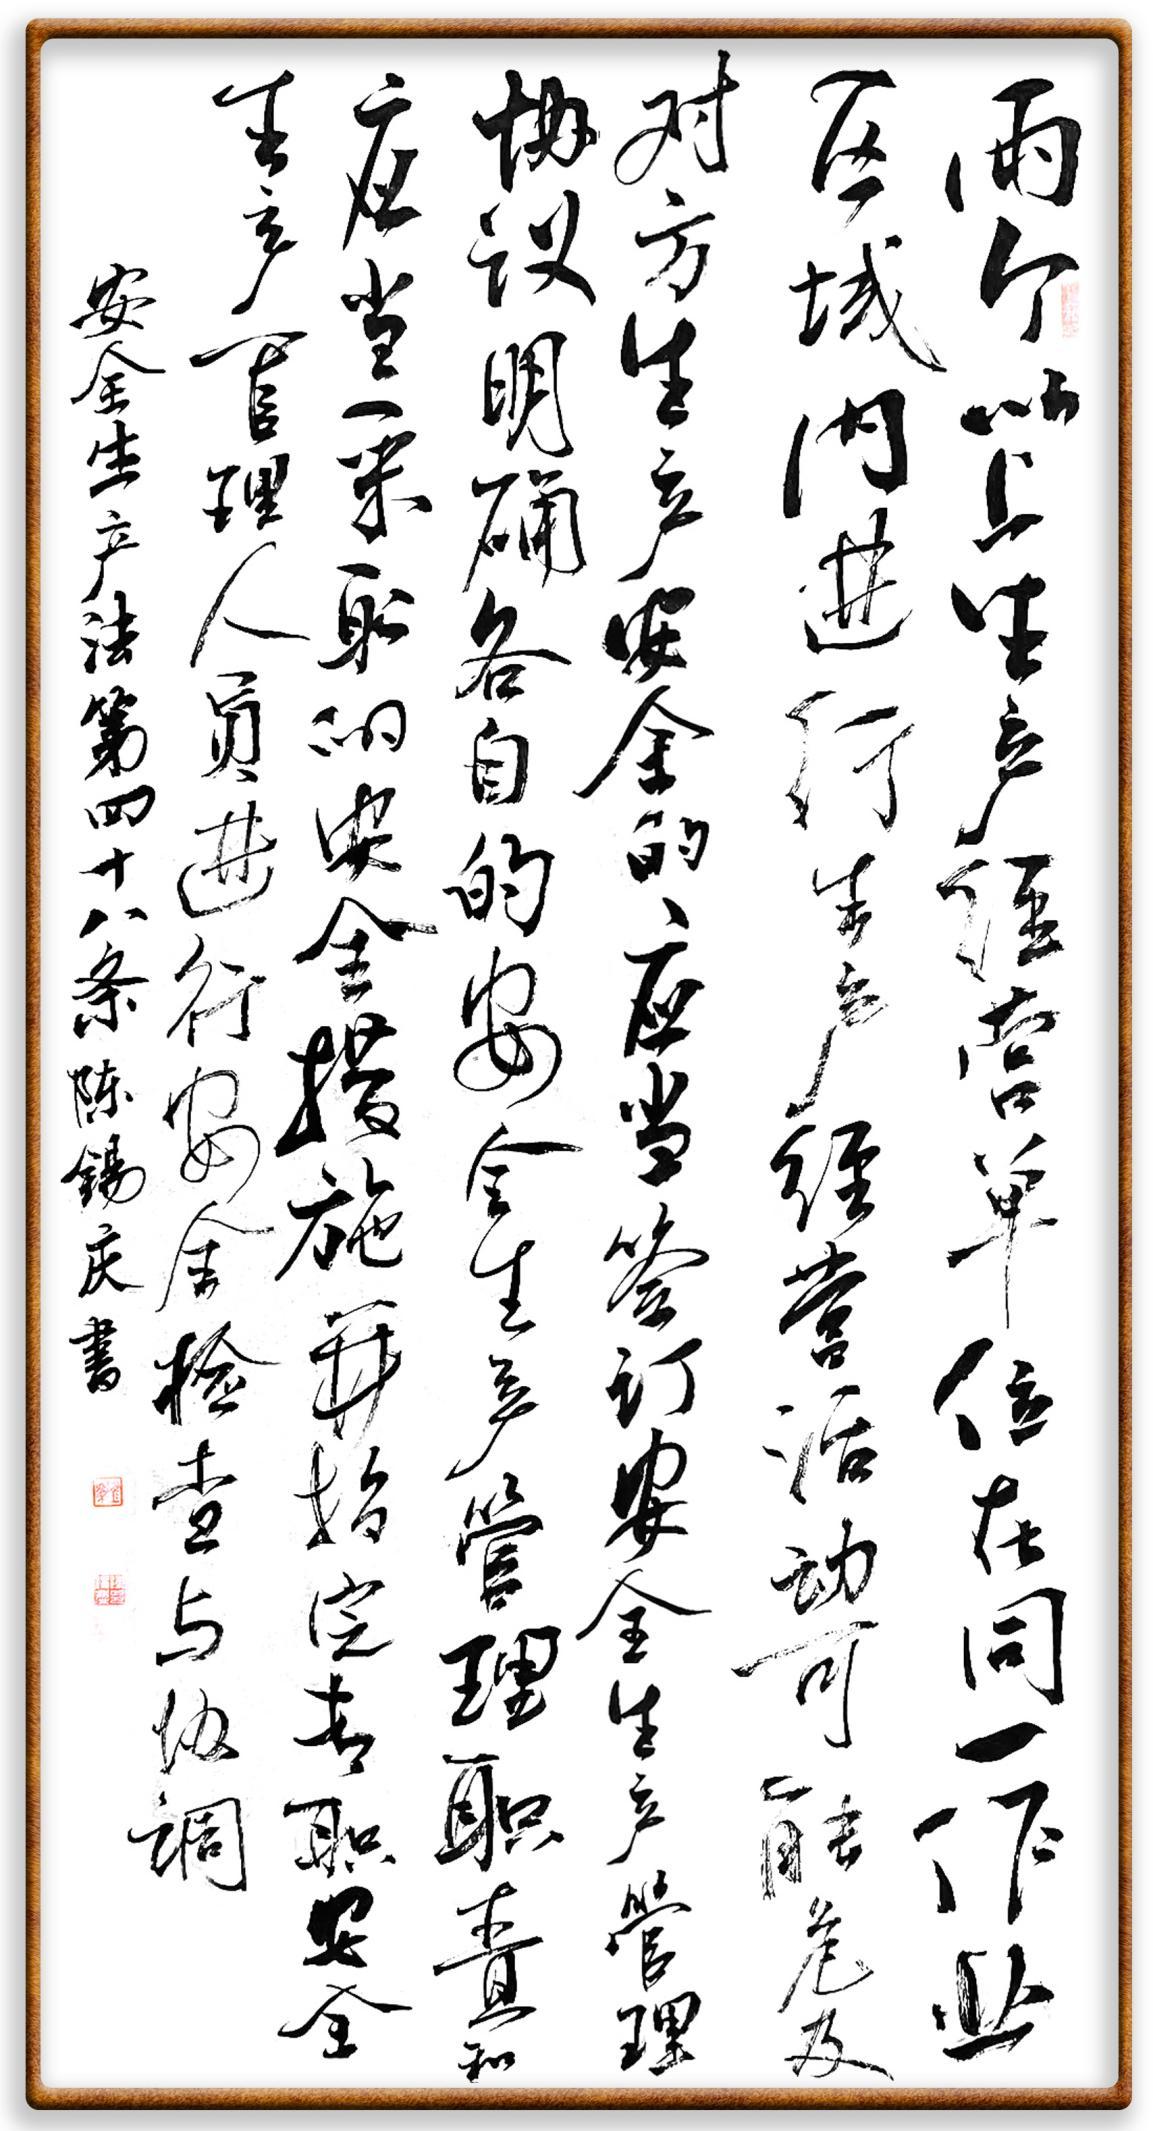 两个以上生产经营单位在同一作业
区域内进行生产经营活动可能危及
对方生产安全的、应当签订安全生产管理
协议明确各自的安全生产管理职责和
应当采取的安全措施并指定专职安全
生产管理人员进行安全检查与协调
安全生产法第四十八条陈锡庆书